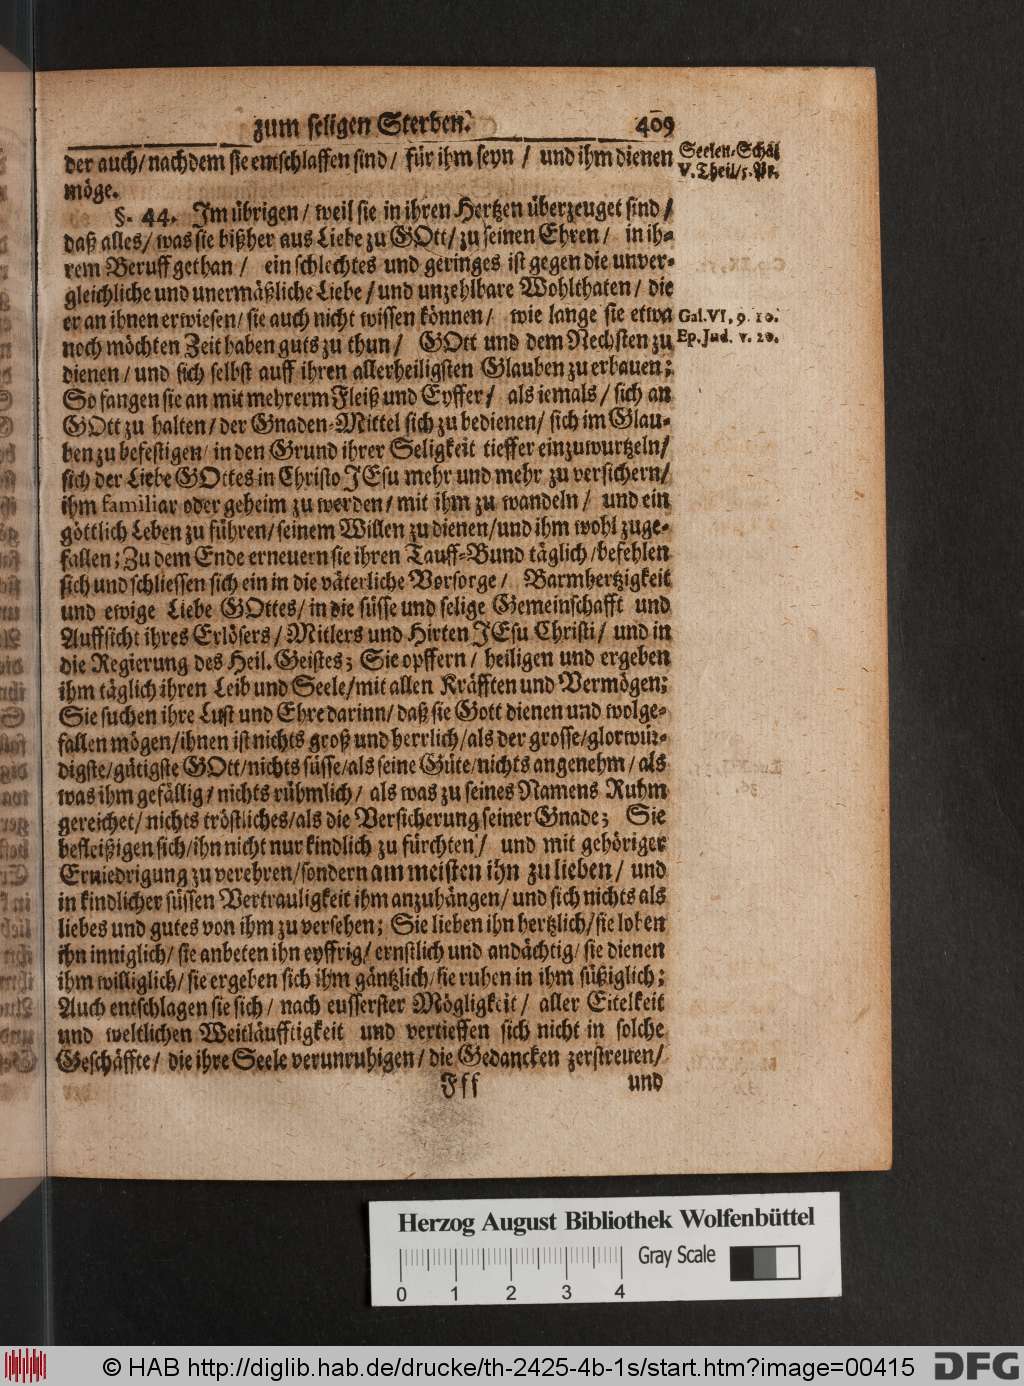 zum seligen Sterben. 409
der auch/ nachdem sie entschlaffen sind/ für ihm seyn / und ihm dienen
möge.
Seelen-Schäl
V. Theil/ 5. Pr.
§. 44. Im übrigen / weil sie in ihren Hertzen überzeuget sind /
daß alles/ was sie bißher aus Liebe zu GOtt/ zu seinen Ehren / in ih-
rem Beruff gethan / ein schlechtes und geringes ist gegen die unver-
gleichliche und unermäßliche Liebe / und unzehlbare Wohlthaten / die
er an ihnen erwiesen/ sie auch nicht wissen können / wie lange sie etwa
noch möchten Zeit haben guts zu thun / GOtt und dem Nechsten zu
Gal. VI, 9. 10.
Ep. Jud. v. 20.
dienen / und sich selbst auff ihren allerheiligsten Glauben zu erbauen;
So fangen sie an mit mehrerm Fleiß und Eyffer / als iemals / sich an
GOtt zu halten/ der Gnaden-Mittel sich zu bedienen/ sich im Glau-
ben zu befestigen/ in den Grund ihrer Seligkeit tieffer einzuwurtzeln/
sich der Liebe GOttes in Christo JEsu mehr und mehr zu versichern/
ihm familiar oder geheim zu werden/ mit ihm zu wandeln / und ein
göttlich Leben zu führen/ seinem Willen zu dienen/und ihm wohl zuge-
fallen; Zu dem Ende erneuern sie ihren Tauff-Bund täglich/ befehlen
sich und schliessen sich ein in die väterliche Vorsorge / Barmhertzigkeit
und ewige Liebe GOttes/ in die süsse und selige Gemeinschafft und
Auffsicht ihres Erlösers / Mitlers und Hirten JEsu Christi/ und in
die Regierung des Heil. Geistes; Sie opffern / heiligen und ergeben
ihm täglich ihren Leib und Seele/mit allen Kräfften und Vermögen;
Sie suchen ihre Lust und Ehre darinn/ daß sie Gott dienen und wolge-
fallen mögen/ihnen ist nichts groß und herrlich/als der grosse/glorwür-
digste/gütigste GOtt/nichts süsse/als seine Güte/nichts angenehm / als
was ihm gefällig / nichts rühmlich / als was zu seines Namens Ruhm
gereichet/ nichts tröstliches/als die Versicherung seiner Gnade; Sie
befleißigen sich/ihn nicht nur kindlich zu fürchten / und mit gehöriger
Erniedrigung zu verehren/sondern am meisten ihn zu lieben / und
in kindlicher süssen Vertrauligkeit ihm anzuhängen/ und sich nichts als
liebes und gutes von ihm zu versehen; Sie lieben ihn hertzlich/sie loben
ihn inniglich/ sie anbeten ihn eyffrig/ ernstlich und andächtig/ sie dienen
ihm williglich/ sie ergeben sich ihm gäntzlich/ sie ruhen in ihm süßiglich;
Auch entschlagen sie sich / nach eusserster Mögligkeit / aller Eitelkeit
und weltlichen Weitläufftigkeit und vertieffen sich nicht in solche
Geschäffte/ die ihre Seele verunruhigen / die Gedancken zerstreuen/
Fff und
Herzog August Bibliothek Wolfenbüttel
Gray Scale
0 1 2 3 4
© HAB http://diglib.hab.de/drucke/th-2425-4b-1s/start.htm?image=00415 DFG